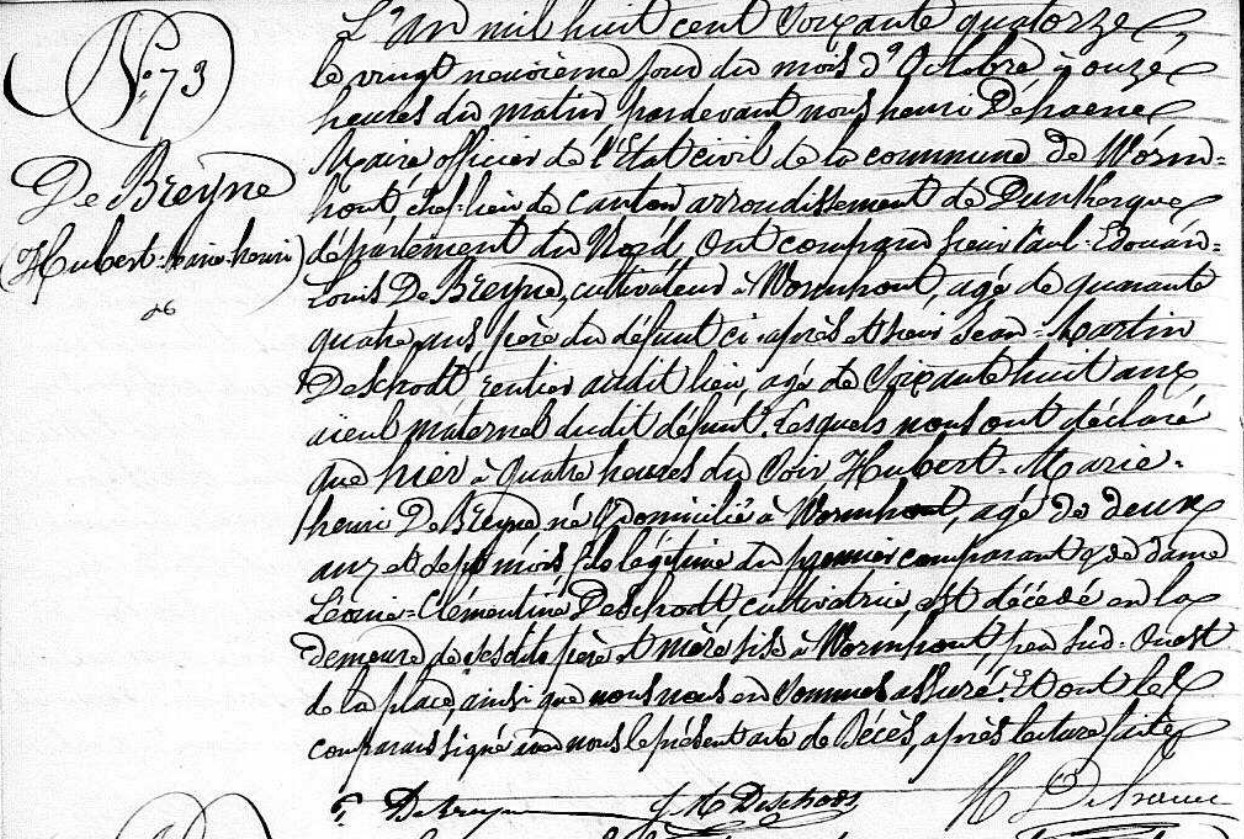 N.° 73
De Breyne
(Hubert-Marie-henri)
L'An mil huit cent soixante quatorze,
le vingt neuvième jour du mois d'Octobre à onze
heures du matin pardevant nous henri Dehaene
Maire, officier de l'Etat civil de la commune de Worm=
hout, chef-lieu de canton arrondissement de Dunkerque
département du Nord, ont comparu sieur Paul-Edouar=
Louis De Breyne, cultivateur à Wormhout, agé de quarante
quatre ans, père du défunt ci-après et sieur Jean-Martin
Deschodt rentier audit lieu, agé de soixante huit ans
aieul maternel dudit défunt. Lesquels nous ont déclaré
que hier à quatre heures du soir Hubert-Marie-
henri De Breyne né & domicilié à Wormhout, agé de deux
ans et sept mois fils légitime du premier comparant & de dame
Léonie-Clémentine Deschodt, cultivatrice, est décédé en la
demeure de sesdits père et mère sise à Wormhout, sud-Ouest
de la place, ainsi que nous nous en sommes assuré. Et ont les
comparans signé avec nous le présent acte de Décès, après lecture faite
De Breyne J M Deschodt H Dehaene